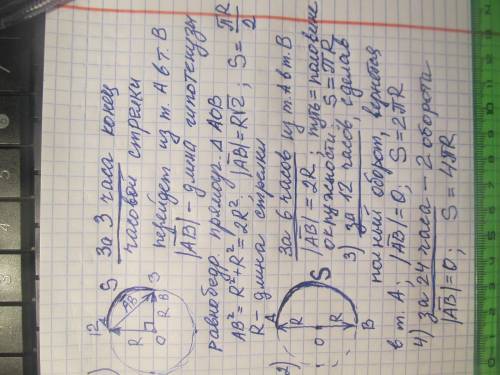 1)
12
A
S
AB
3
B
R
R
O
За 3 часа конец
часовой стрелки
перейдет из т. А в т. В
|AB| – длина гипотенузы
равнобедр. прямоуг. Δ AOB
AB² = R² + R² = 2R² |AB| = R√2; S = πR/2
R – длина стрелки
2)
A
S
R
O
R
B
За 6 часов из т. А в т. В
|AB| = 2R; путь = половине
окружности S = πR
3) За 12 часов, сделав
полный оборот, вернется
в т. А: |AB| = 0; S = 2πR
4) За 24 часа – 2 оборота
|AB| = 0; S = 4πR